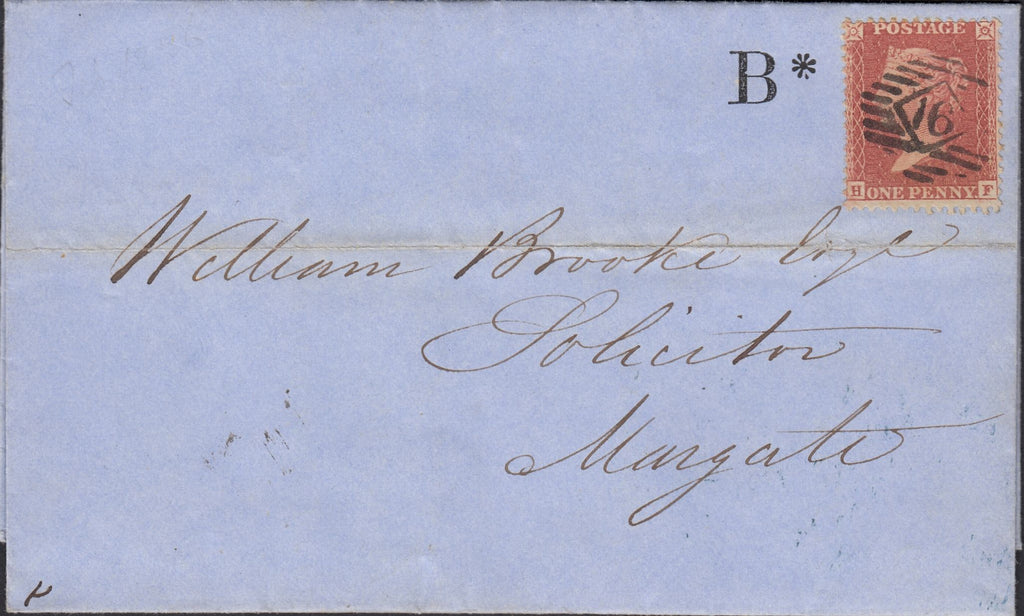 POSTAGE
B*
16
H ONE PENNY F
William Brooke Esqr
Solicitor
Margate